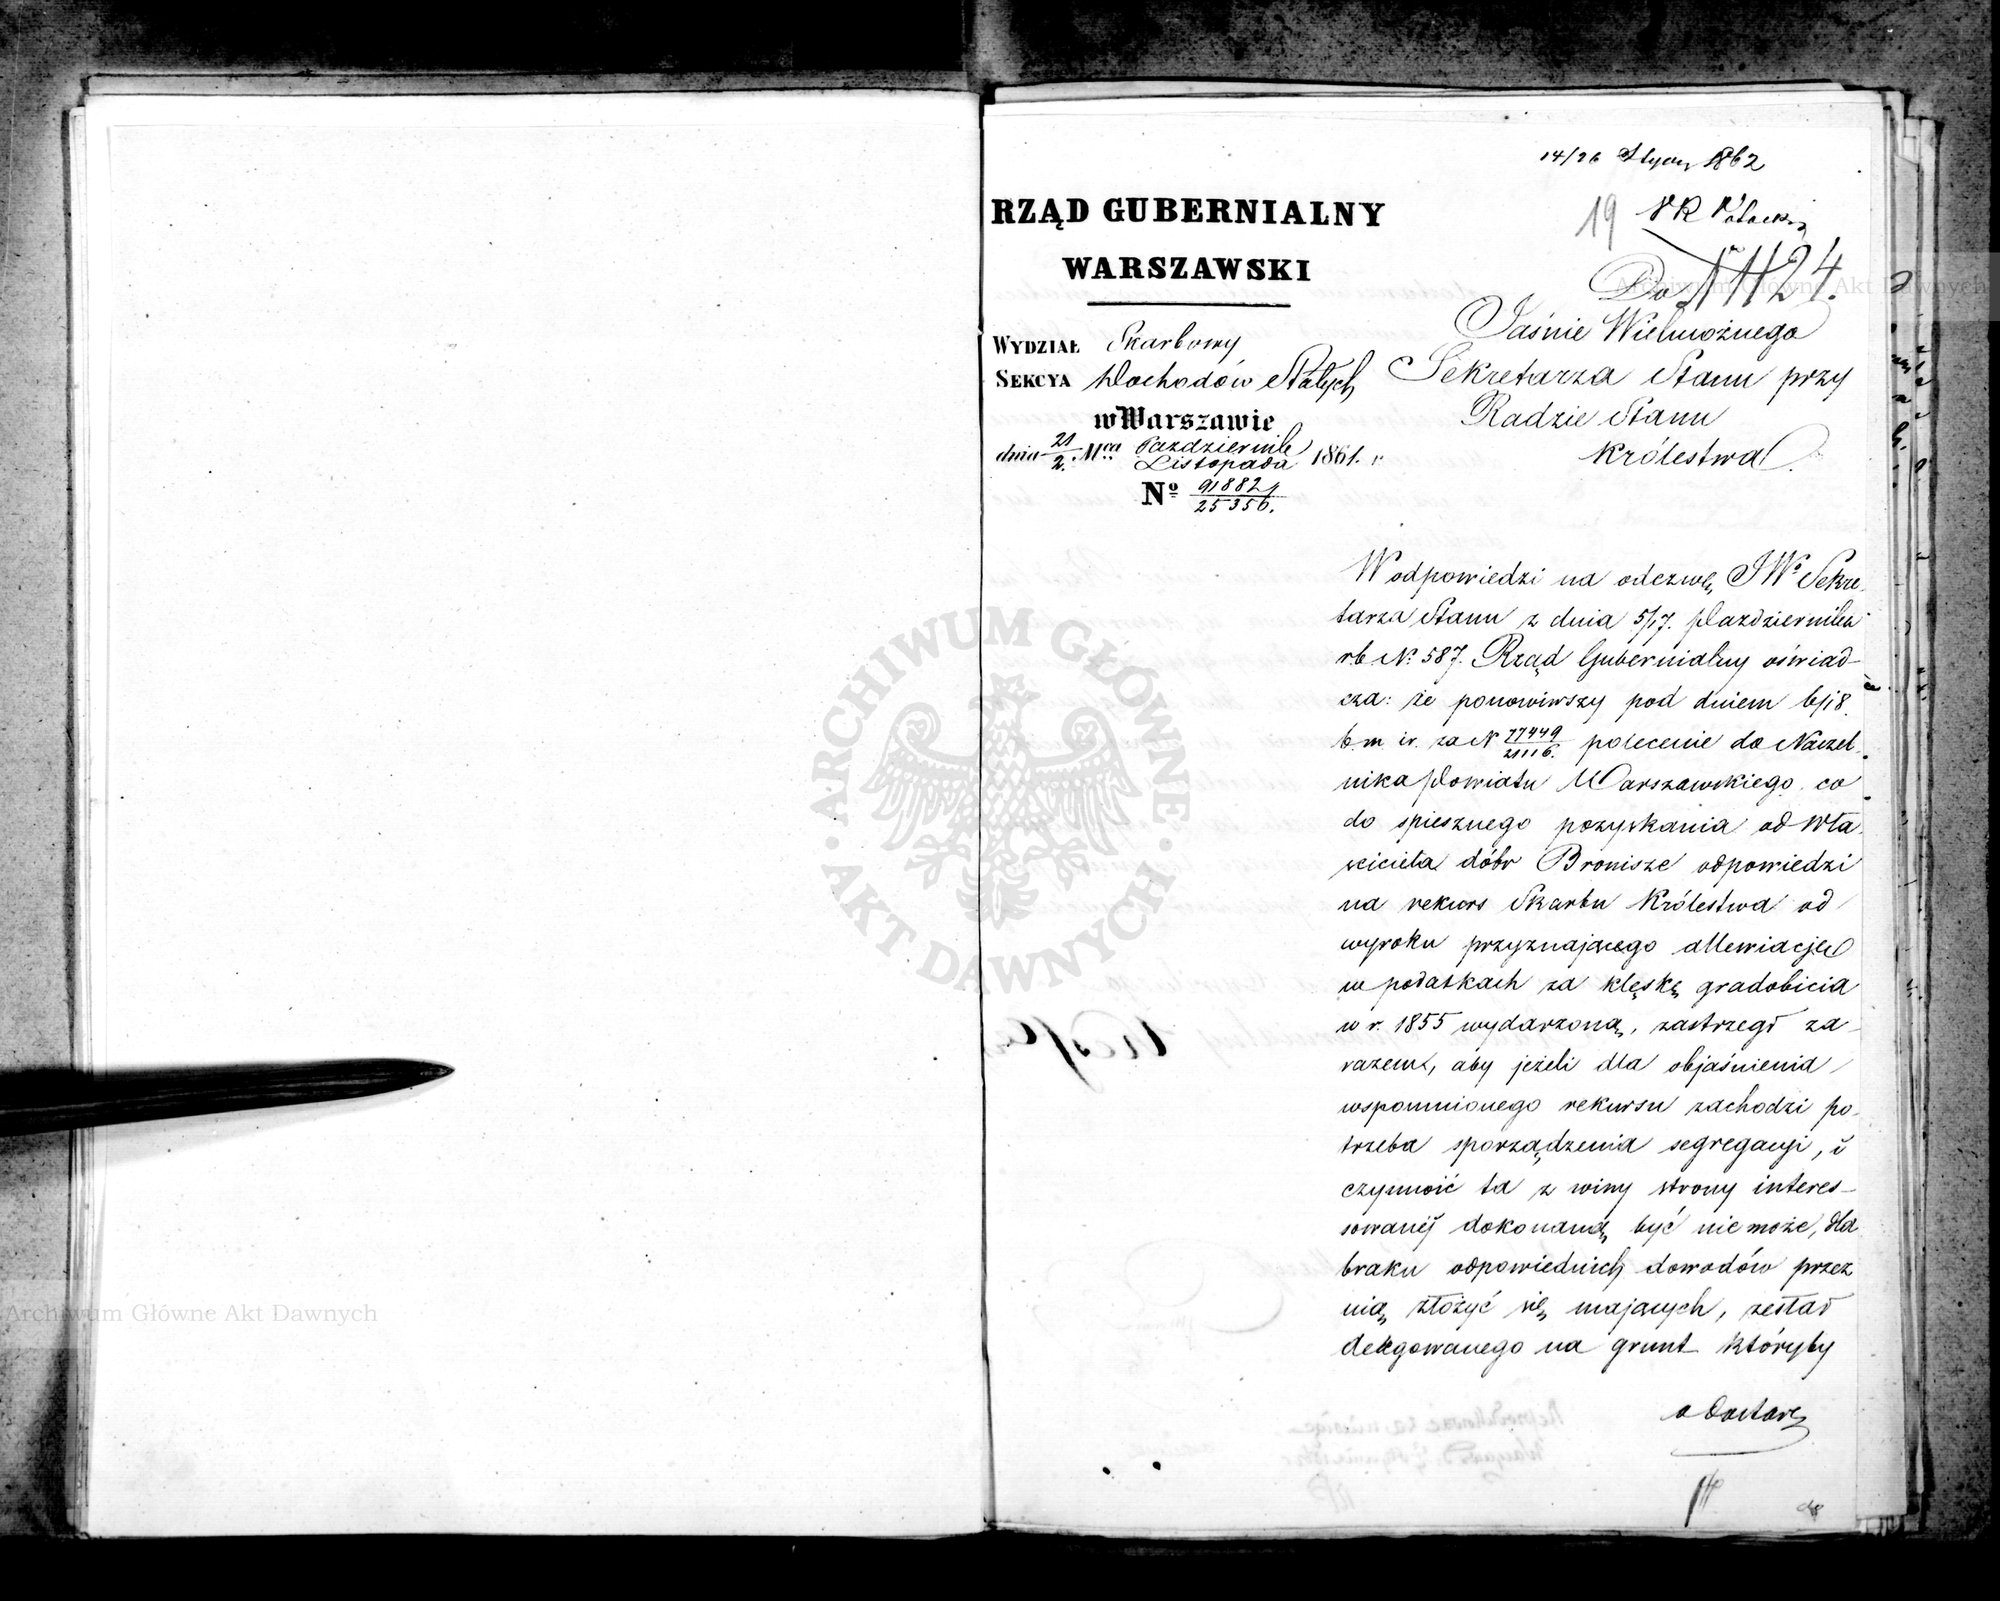 14/26 Stycz 1862
19
RZĄD GUBERNIALNY
WARSZAWSKI
WYDZIAŁ Skarbowy
SEKCYA Dochodów Stałych
w Warszawie
dnia 21/2 Mca Październik/Listopada 1861. r.
No 91882/25356.
N 1124.
Do
Jaśnie Wielmożnego
Sekretarza Stanu przy
Radzie Stanu
Królestwa
W odpowiedzi na odezwę JWo Sekre-
tarza Stanu z dnia 5/17. Października
rb No 587. Rząd Gubernialny oświad-
cza: że ponowiwszy pod dniem 6/18
b. m i r. za N 77449/21116. polecenie do Naczel-
nika Powiatu Warszawskiego co
do spiesznego pozyskania od Wła-
ściciela dóbr Bronisze odpowiedzi
na rekurs Skarbu Królestwa od
wyroku przyznającego allewiacje
w podatkach za klęskę gradobicia
w r. 1855 wydarzoną, zastrzegł za-
razem, aby jeżeli dla objaśnienia
wspomnionego rekursu zachodzi po-
trzeba sporządzenia segregacyi, i
czynność ta z winy strony interes-
sowanéj dokonaną być nie może, dla
braku odpowiednich dowodów przez
nią złożyć się mających, zesłał
delegowanego na grunt któryby
odostarc
ARCHIWUM GŁÓWNE AKT DAWNYCH
Archiwum Główne Akt Dawnych
Archiwum Główne Akt Dawnych